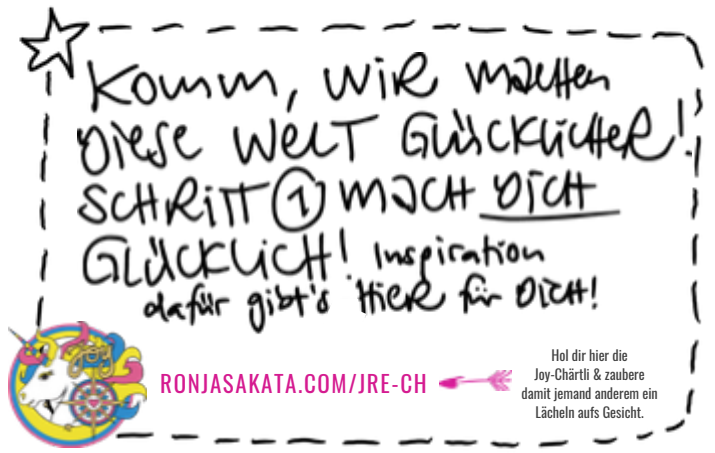 Komm, wir machen
diese Welt glücklicher!
Schritt 1 mach dich
glücklich! Inspiration
dafür gibt's hier für dich!
joy
RONJASAKATA.COM/JRE-CH
Hol dir hier die
Joy-Chärtli & zaubere
damit jemand anderem ein
Lächeln aufs Gesicht.